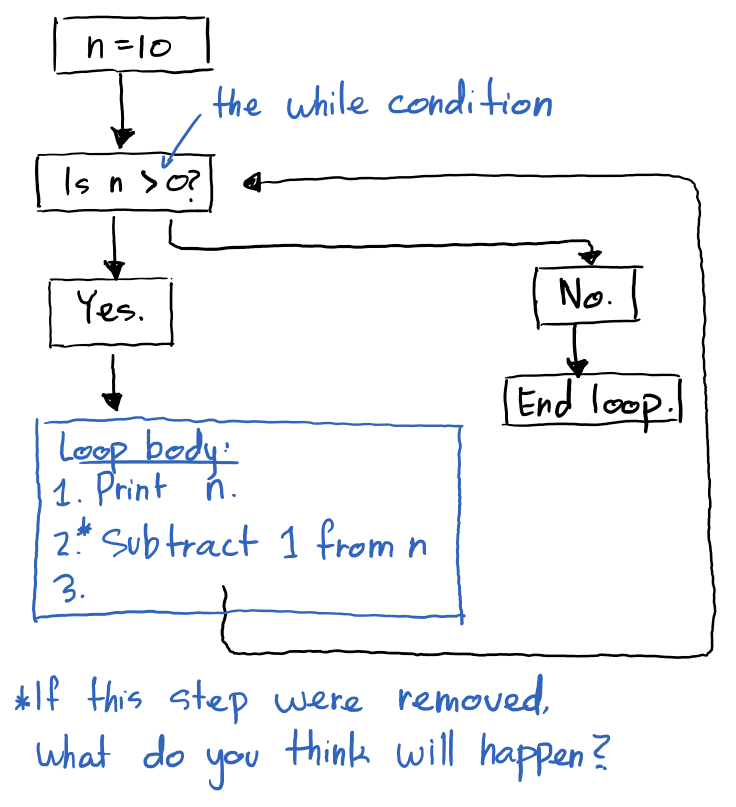 n=10
the while condition
Is n >0?
Yes.
No.
End loop.
Loop body:
1. Print n.
2.* Subtract 1 from n
3.
*If this step were removed,
what do you think will happen?